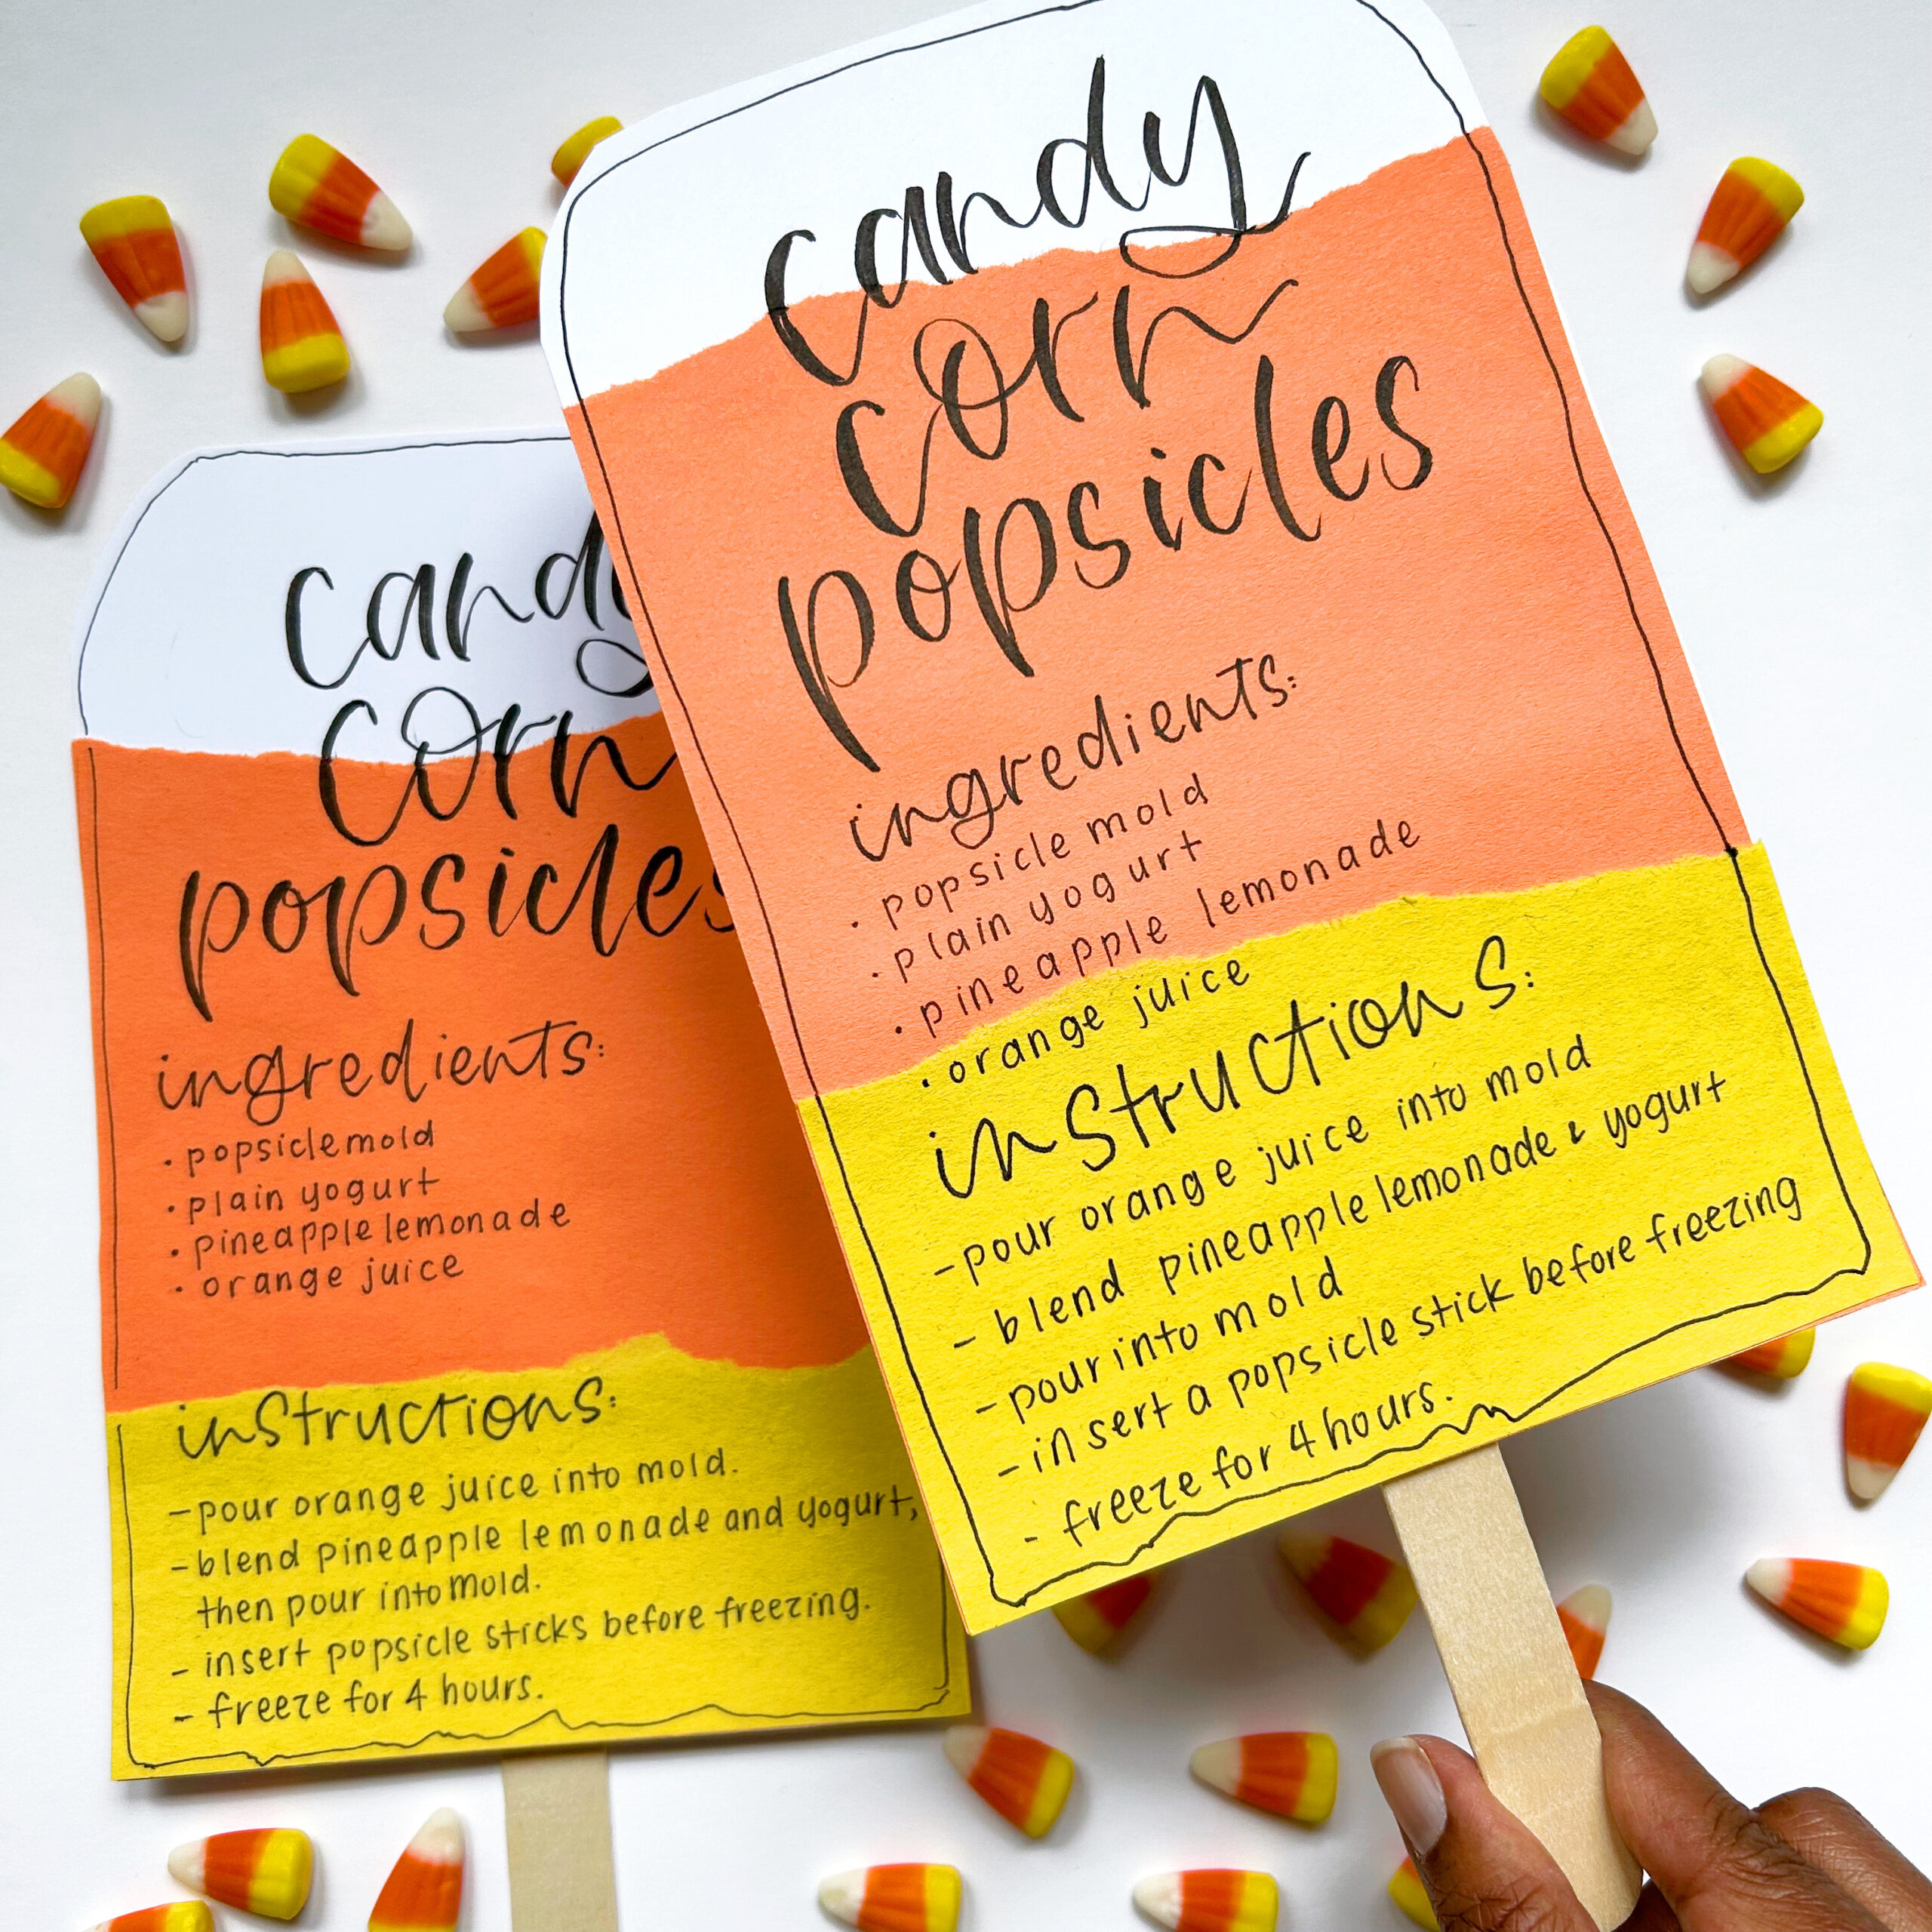 candy
corn
popsicles
ingredients:
• popsicle mold
• plain yogurt
• pineapple lemonade
• orange juice
instructions:
- pour orange juice into mold.
- blend pineapple lemonade and yogurt,
then pour into mold.
- insert popsicle sticks before freezing.
- freeze for 4 hours.
candy
corn
popsicles
ingredients:
• popsicle mold
• plain yogurt
• pineapple lemonade
• orange juice
instructions:
- pour orange juice into mold
- blend pineapple lemonade & yogurt
- pour into mold
- insert a popsicle stick before freezing
- freeze for 4 hours.